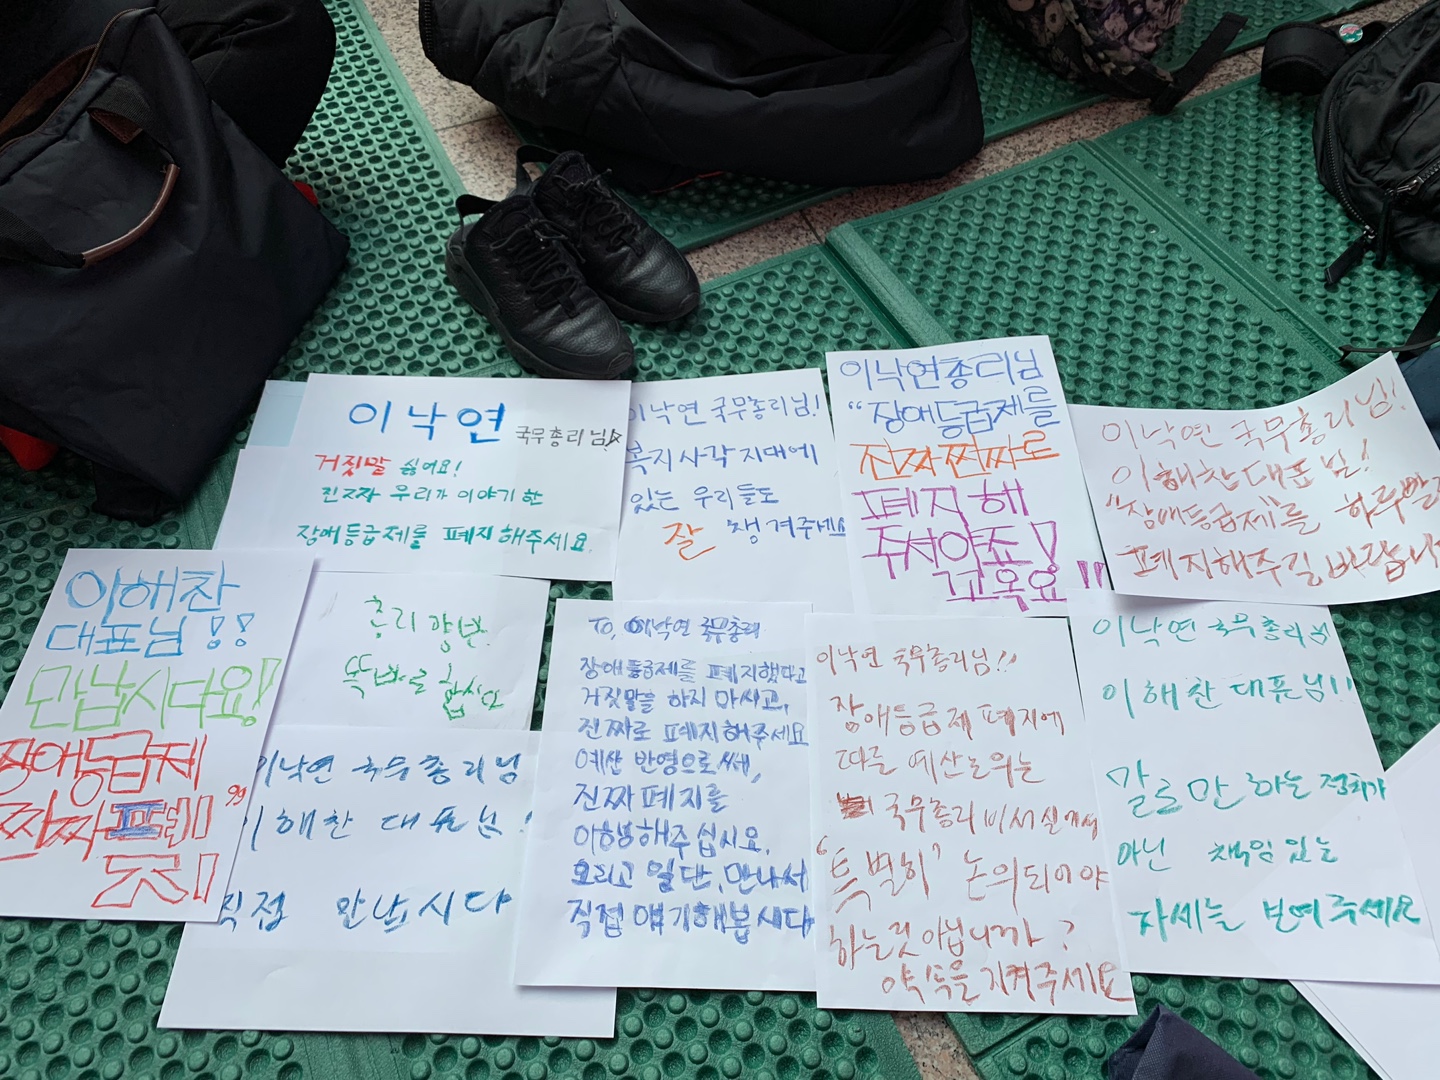 이낙연 국무총리님
거짓말 싫어요!
진짜 우리가 이야기한
장애등급제를 폐지해주세요
이낙연 국무총리님!
복지사각지대에
있는 우리들도
잘 챙겨주세요
이낙연총리님
"장애등급제를
진짜찐짜로
폐지해
주셔야죠!
꼬옥요!!
이낙연 국무총리님!
이해찬대표님!
"장애등급제"를 하루빨
폐지해주길 바랍니
이해찬
대표님!!
만납시다요!
장애등급제
찐짜폐
지!
총리 양반
똑바로 합시다
이낙연 국무총리님
이해찬 대표님!
직접 만납시다
To. 이낙연 국무총리
장애등급제를 폐지했다고
거짓말을 하지 마시고,
진짜로 폐지해주세요
예산 반영으로써,
진짜 폐지를
이행해주십시요.
그리고 일단, 만나서
직접 얘기해봅시다
이낙연 국무총리님!!
장애등급제 폐지에
따른 예산논의는
국무총리비서실에서
'특별히' 논의되어야
하는것 아닙니까?
약속을 지켜주세요
이낙연 국무총리님
이해찬 대표님!!
말로만 하는 정치가
아닌 책임 있는
자세를 보여주세요